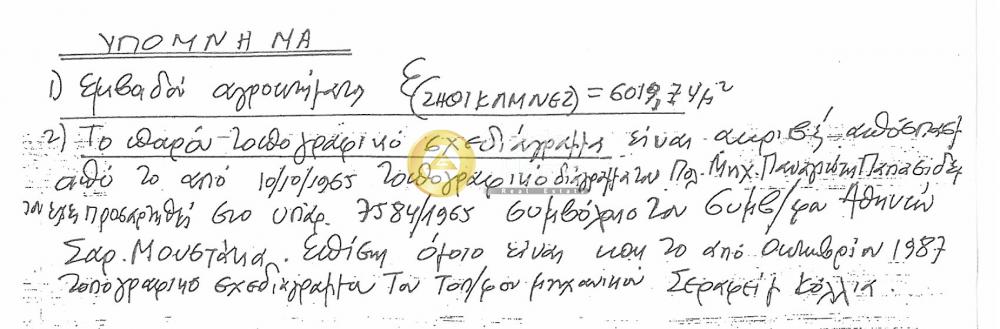 ΥΠΟΜΝΗΜΑ
1) Εμβαδόν αγροκτήματος Ε(ΖΗΘΙΚΛΜΝΕΖ) = 6019,74μ²
2) Το παρόν τοπογραφικό σχεδιάγραμμα είναι ακριβές απόσπασμα
από το από 10/10/1965 τοπογραφικό διάγραμμα του Πολ. Μηχ. Παναγιώτη
που έχει προσαρτηθεί στο υπάρ. 7584/1965 συμβόλαιο του συμβ/φου Αθηνών
Σαρ. Μουστάκα. Επίσης όμοιο είναι και το από Οκτωβρίου 1987
τοπογραφικό σχεδιάγραμμα του Τοπ/φου μηχανικού Σεραφείμ Κόλλια.
Real Estate